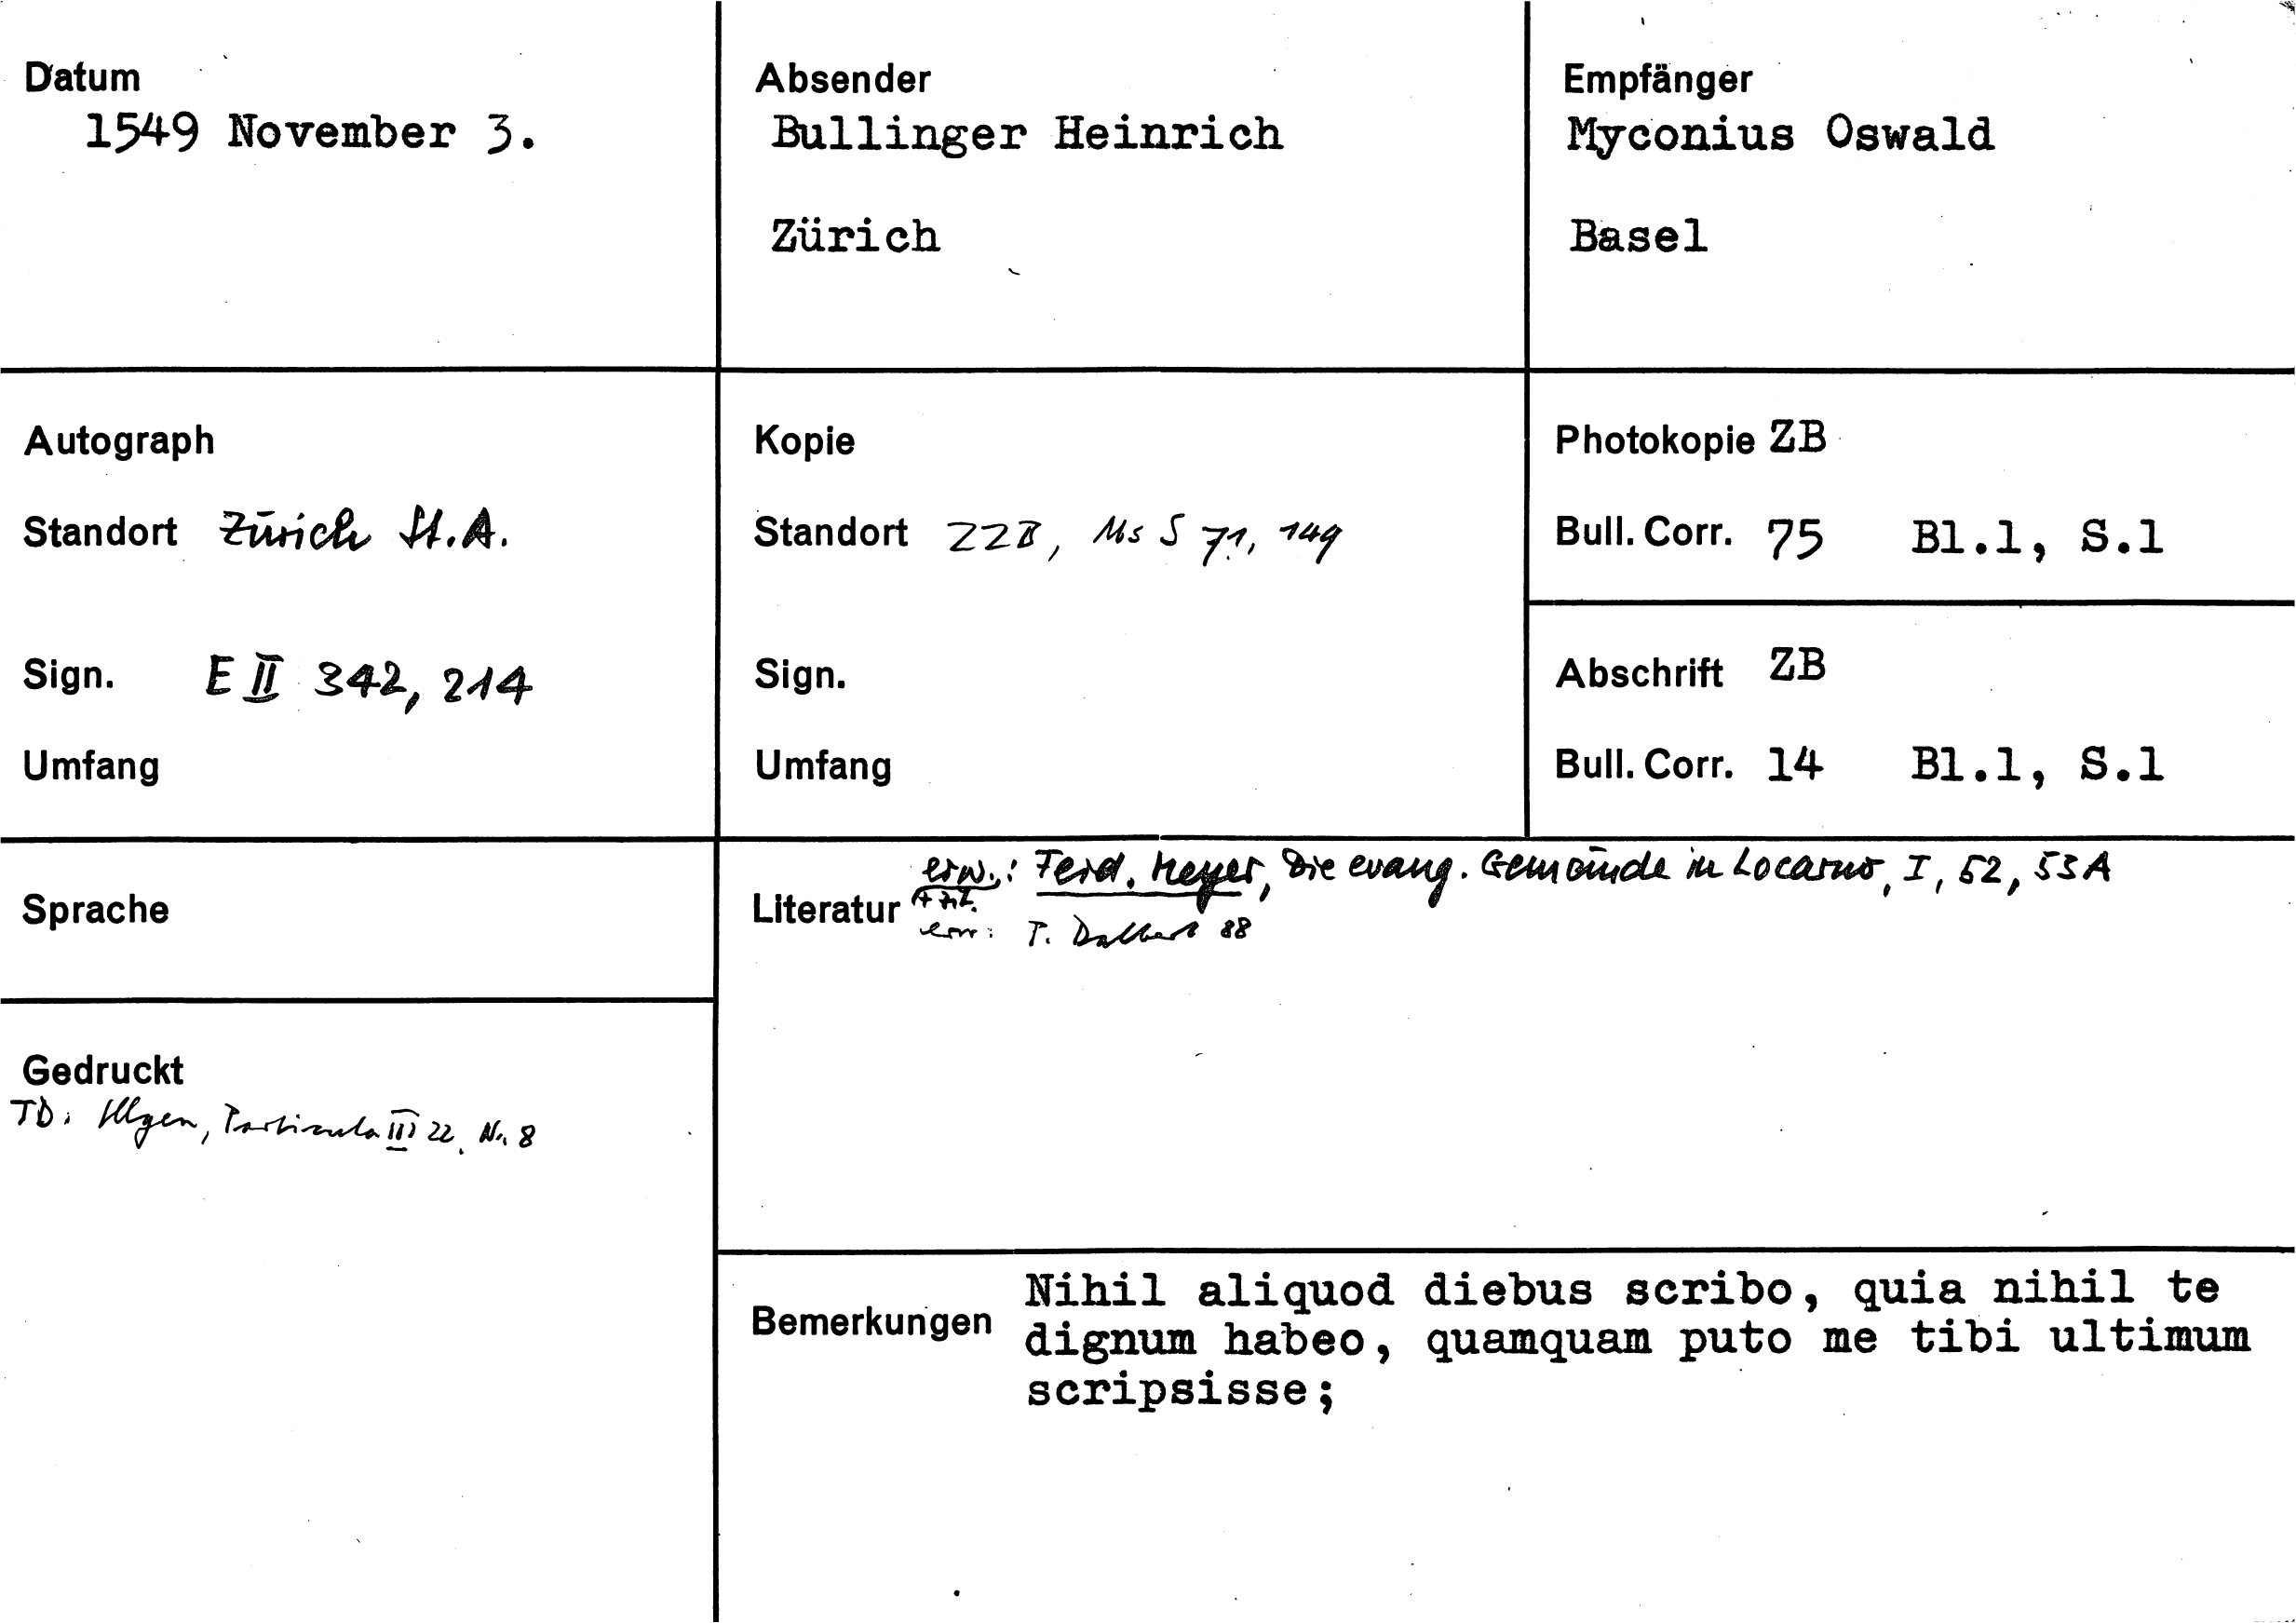 Datum
1549 November 3.
Absender
Bullinger Heinrich
Zürich
Empfänger
Myconius Oswald
Basel
Autograph
Standort Zürich St.A.
Sign. E II 342, 214
Umfang
Kopie
Standort ZZB, Ms S 71, 149
Sign.
Umfang
Photokopie ZB
Bull. Corr. 75 Bl.1, S.1
Abschrift ZB
Bull. Corr. 14 Bl.1, S.1
Sprache
Literatur erw.: Ferd. Meyer, Die evang. Gemeinde in Locarno, I, 52, 53 A
+ zit.
erw: T. Dalbert 88
Gedruckt
TD: Illgen, Particula III 22, Nr. 8
Bemerkungen Nihil aliquod diebus scribo, quia nihil te
dignum habeo, quamquam puto me tibi ultimum
scripsisse;